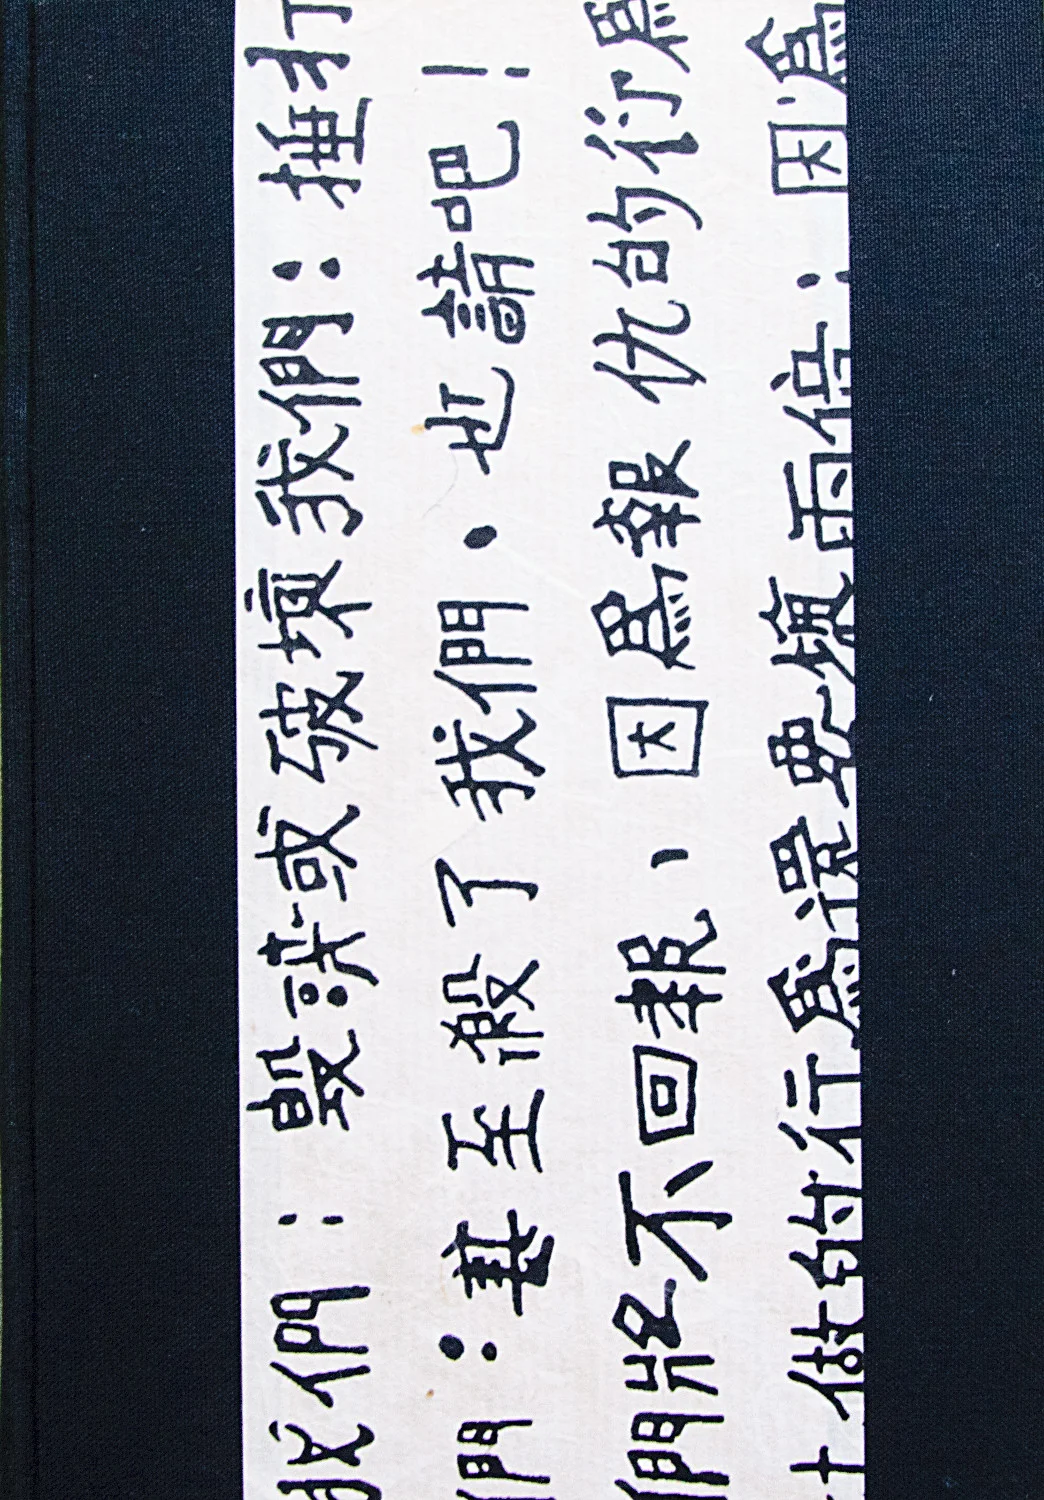 我們：毀 或破壞我們：捶打
們：甚至殺了我們．也請吧！
們將不回報、因爲報仇的行爲
做的行爲還要壞兩倍；因爲